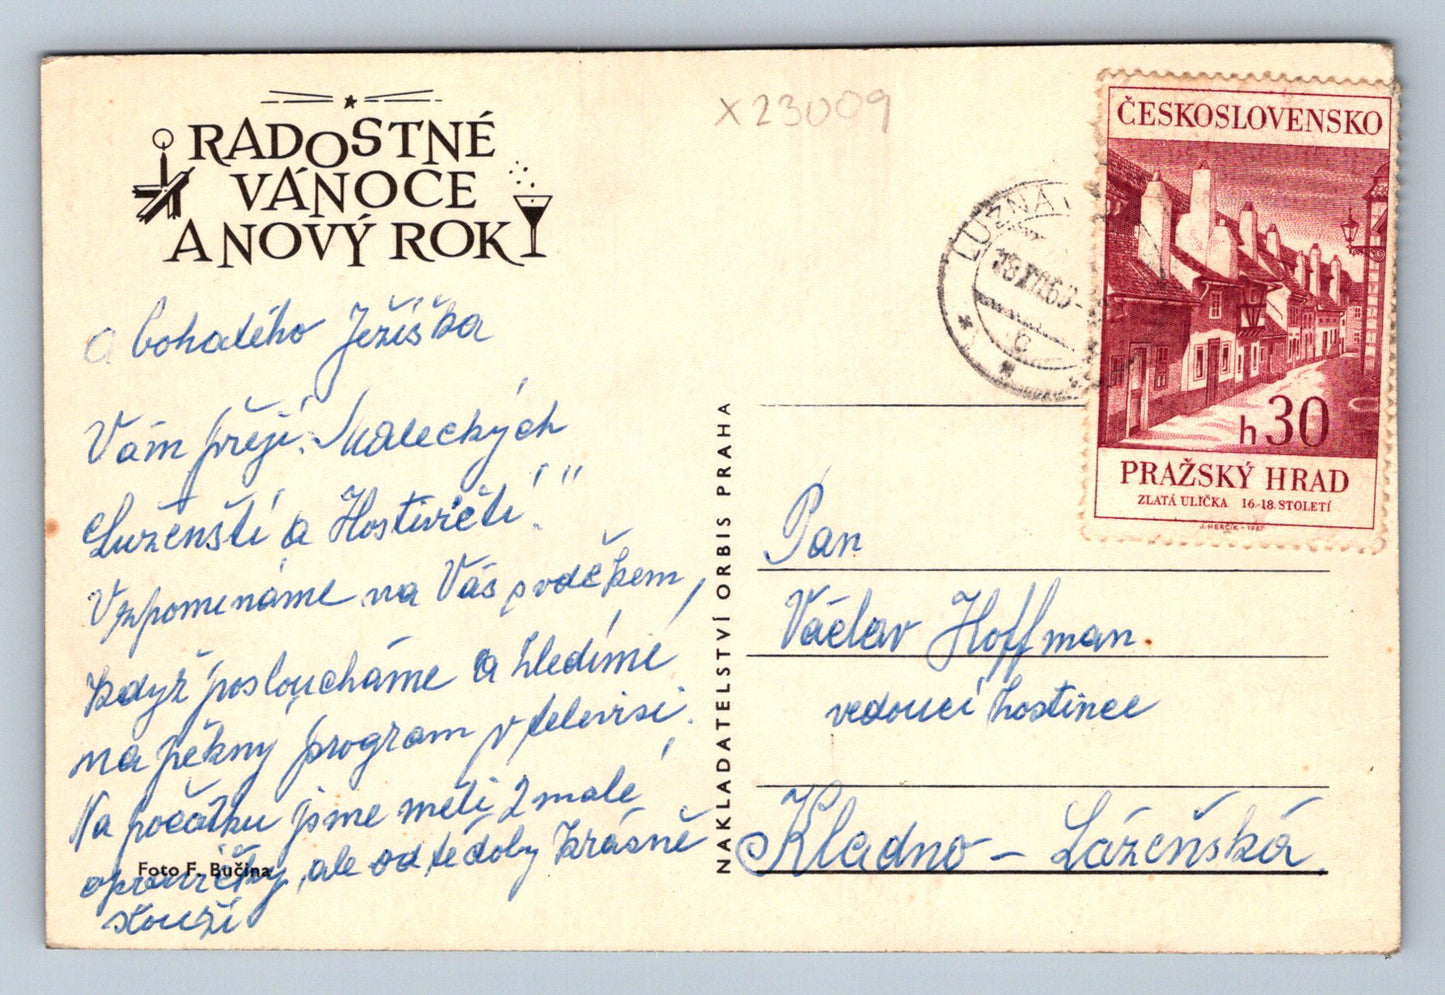 RADOSTNÉ
VÁNOCE
A NOVÝ ROK
a bohatého Ježíška
Vám přejí. Maleckých
Luženští a Hostivičtí"
Vzpomenáme na Vás s vděčkem,
když posloucháme a hledímé
na pěkny program v televisi.
Na počátku jsme měli 2 malé
opravičky, ale od té doby krásně
slouží
Foto F. Bučina
NAKLADATELSTVÍ ORBIS PRAHA
X23009
LUŽNÁ
c
ČESKOSLOVENSKO
h 30
PRAŽSKÝ HRAD
ZLATÁ ULIČKA 16.-18. STOLETÍ
J. HERČÍK - 1967
Pan
Václav Hoffman.
vedoucí hostince
Kladno - Lázeňská.